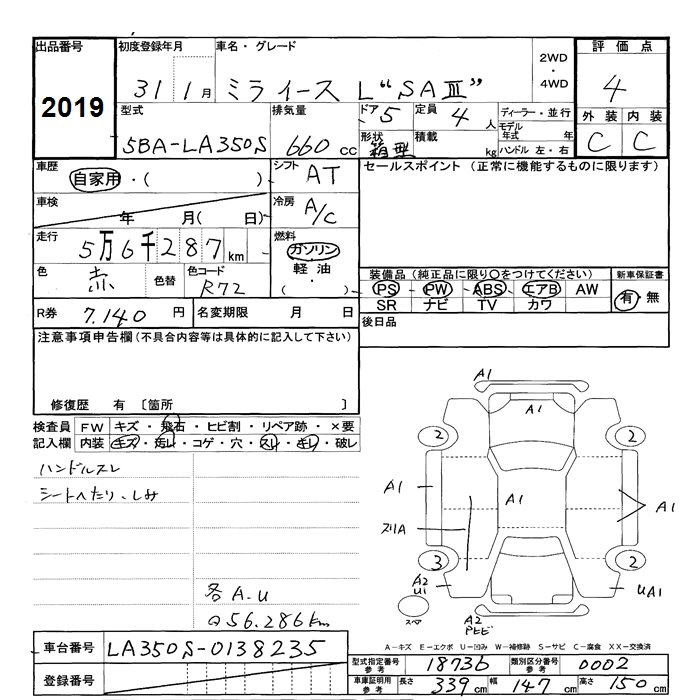 出品番号 初度登録年月 車名・グレード 評価点
2019 31 1月 ミライース L"SAⅢ" 2WD・4WD 4
型式 排気量 ドア 5 定員 4人 ディーラー・並行 外装 内装
5BA-LA350S 660cc 形状 箱型 積載 kg モデル年式 年 ハンドル 左・右 C C
車歴 自家用・( ) シフト AT セールスポイント(正常に機能するものに限ります)
車検 年 月( 日) 冷房 A/C
走行 5万6千287km 燃料 ガソリン 軽油・( )
色 赤 色替 色コード R72 装備品(純正品に限り○をつけてください) 新車保証書
PS・PW・ABS・エアB AW 有・無
SR ナビ TV カワ
R券 7.140円 名変期限 月 日 後日品
注意事項申告欄(不具合内容等は具体的に記入して下さい)
修復歴 有 〔箇所 〕
検査員 FW キズ・飛石・ヒビ割・リペア跡・×要
記入欄 内装 キズ・汚レ・コゲ・穴・スレ・キレ・破レ
ハンドルスレ
シートヘたり、しみ
A1
A1
2 2
A1 A1 A1
スリA
3 2
A2 U1 UA1
スペア
A2
各A.U
Q56.286km
A-キズ E-エクボ U-凹み W-補修跡 S-サビ C-腐食 XX-交換済
車台番号 LA350S-0138235 型式指定番号 参考 18736 類別区分番号 参考 0002
登録番号 車庫証明用 参考 長さ 339cm 幅 147cm 高さ 150cm